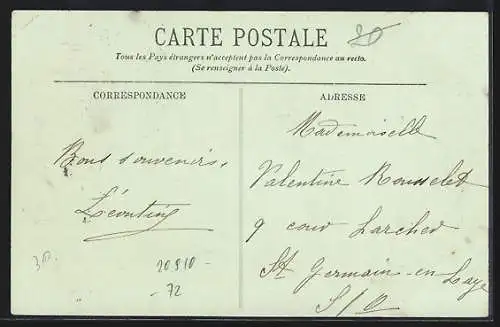 CARTE POSTALE
20
Tous les Pays étrangers n'acceptent pas la Correspondance au recto.
(Se renseigner à la Poste).
CORRESPONDANCE
ADRESSE
Bons souvenirs.
Léontine
Mademoiselle
Valentine Rousselet
9 cour Larcher
St Germain-en-Laye
S/O
30.
20910 -
- 72